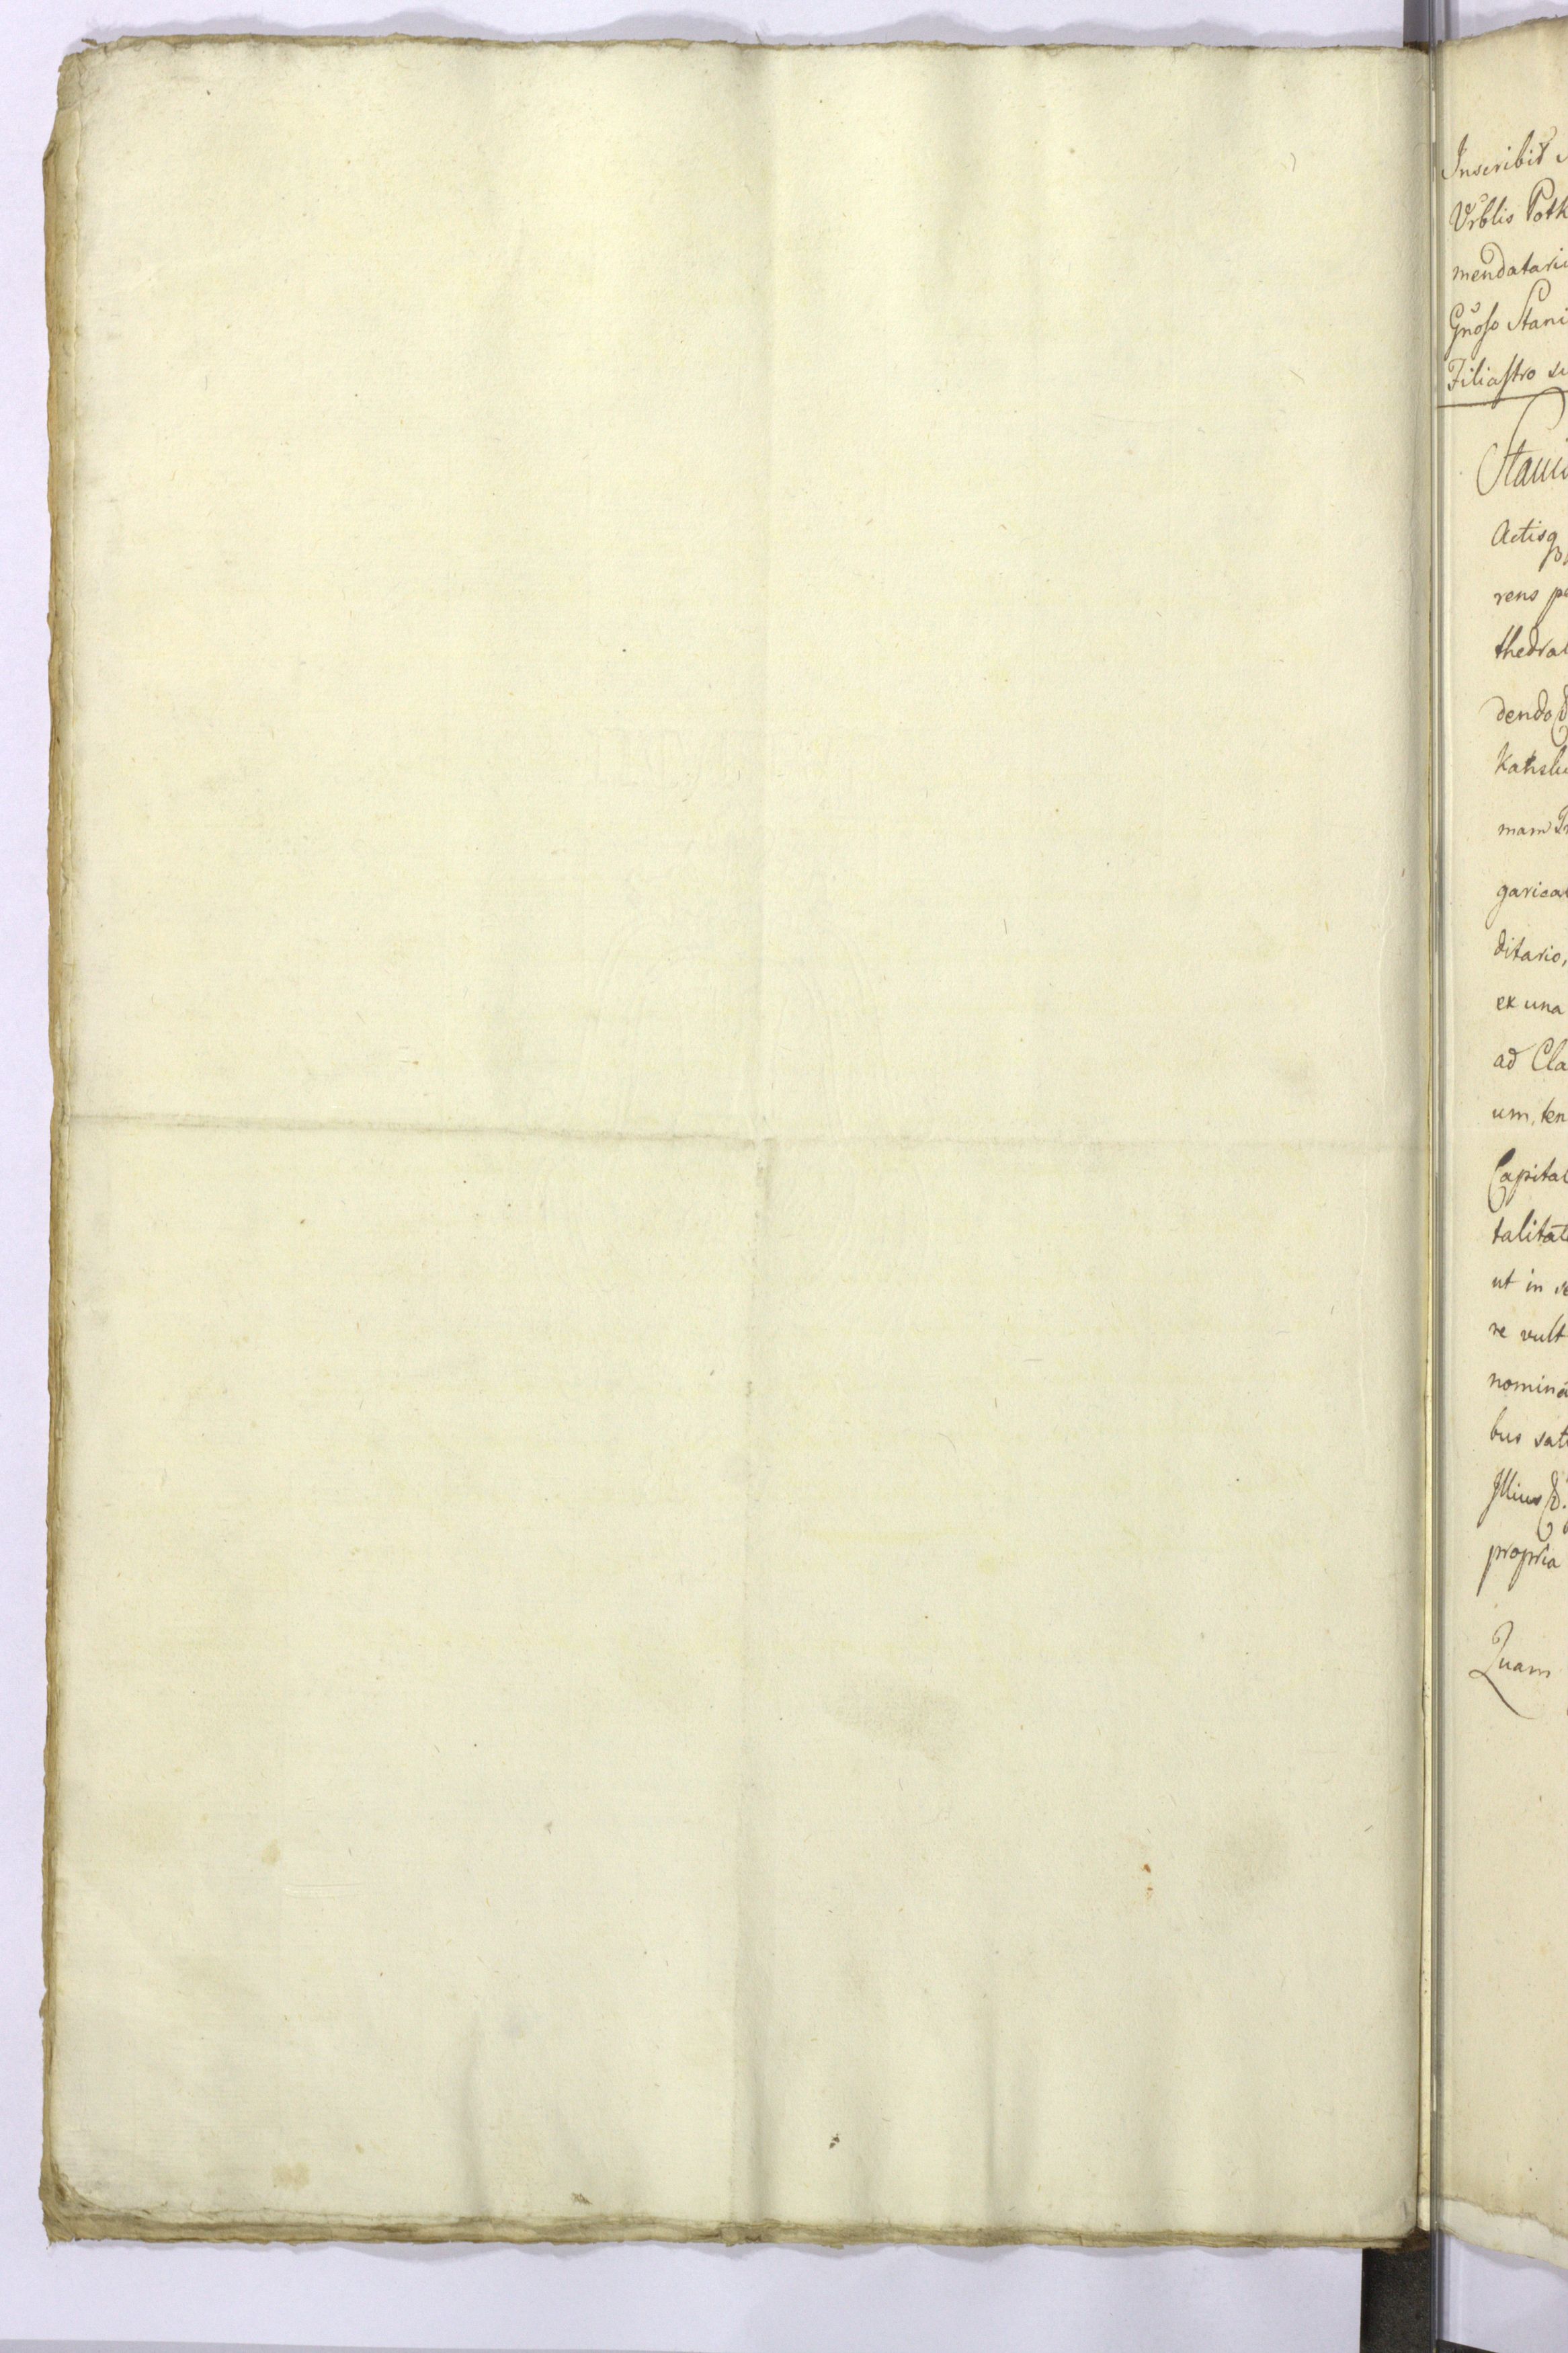 Inscribit
Vrblis Potk
mendatari
Gnoso Stani
Filiastro su
Stani
Actisq
rens pe
thedral
dendo
Kansk
mam
garical
ditario,
ex una
ad Cla
um, ten
Capital
talitate
ut in re
re vult
nomina
bus sat
Illius
propria
Quam